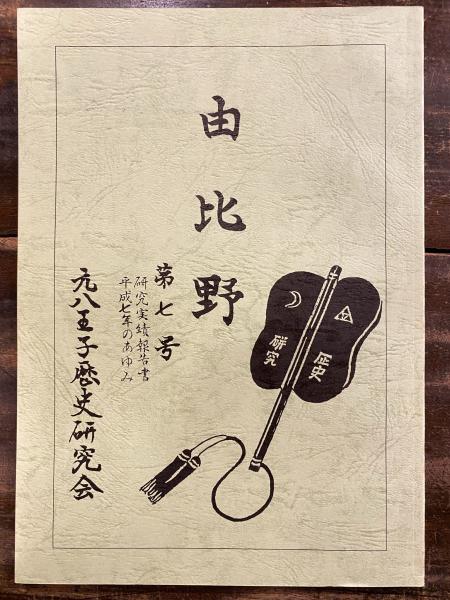 由比野
第七号
研究実績報告書
平成七年のあゆみ
元八王子歴史研究会
歴史
研究